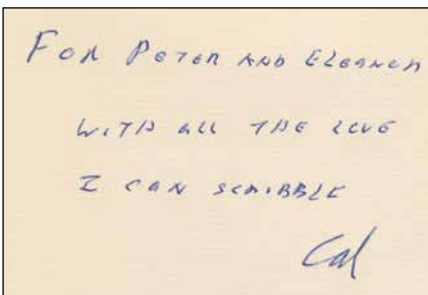 For Peter and Eleanor
with all the love
I can scribble
Cal